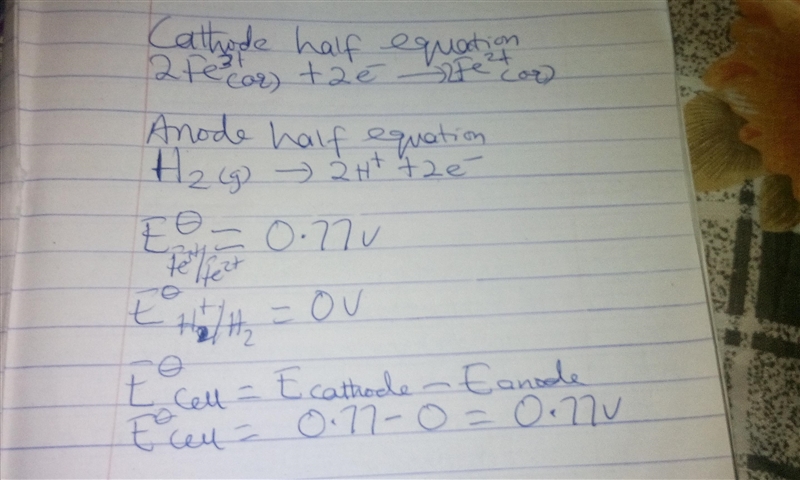 Cathode half equation
2Fe³⁺(aq) + 2e⁻ → 2Fe²⁺(aq)
Anode half equation
H₂(g) → 2H⁺ + 2e⁻
E⊖ Fe³⁺/Fe²⁺ = 0.77V
E⊖ H⁺/H₂ = 0V
E⊖cell = Ecathode – Eanode
E⊖cell = 0.77 – 0 = 0.77V